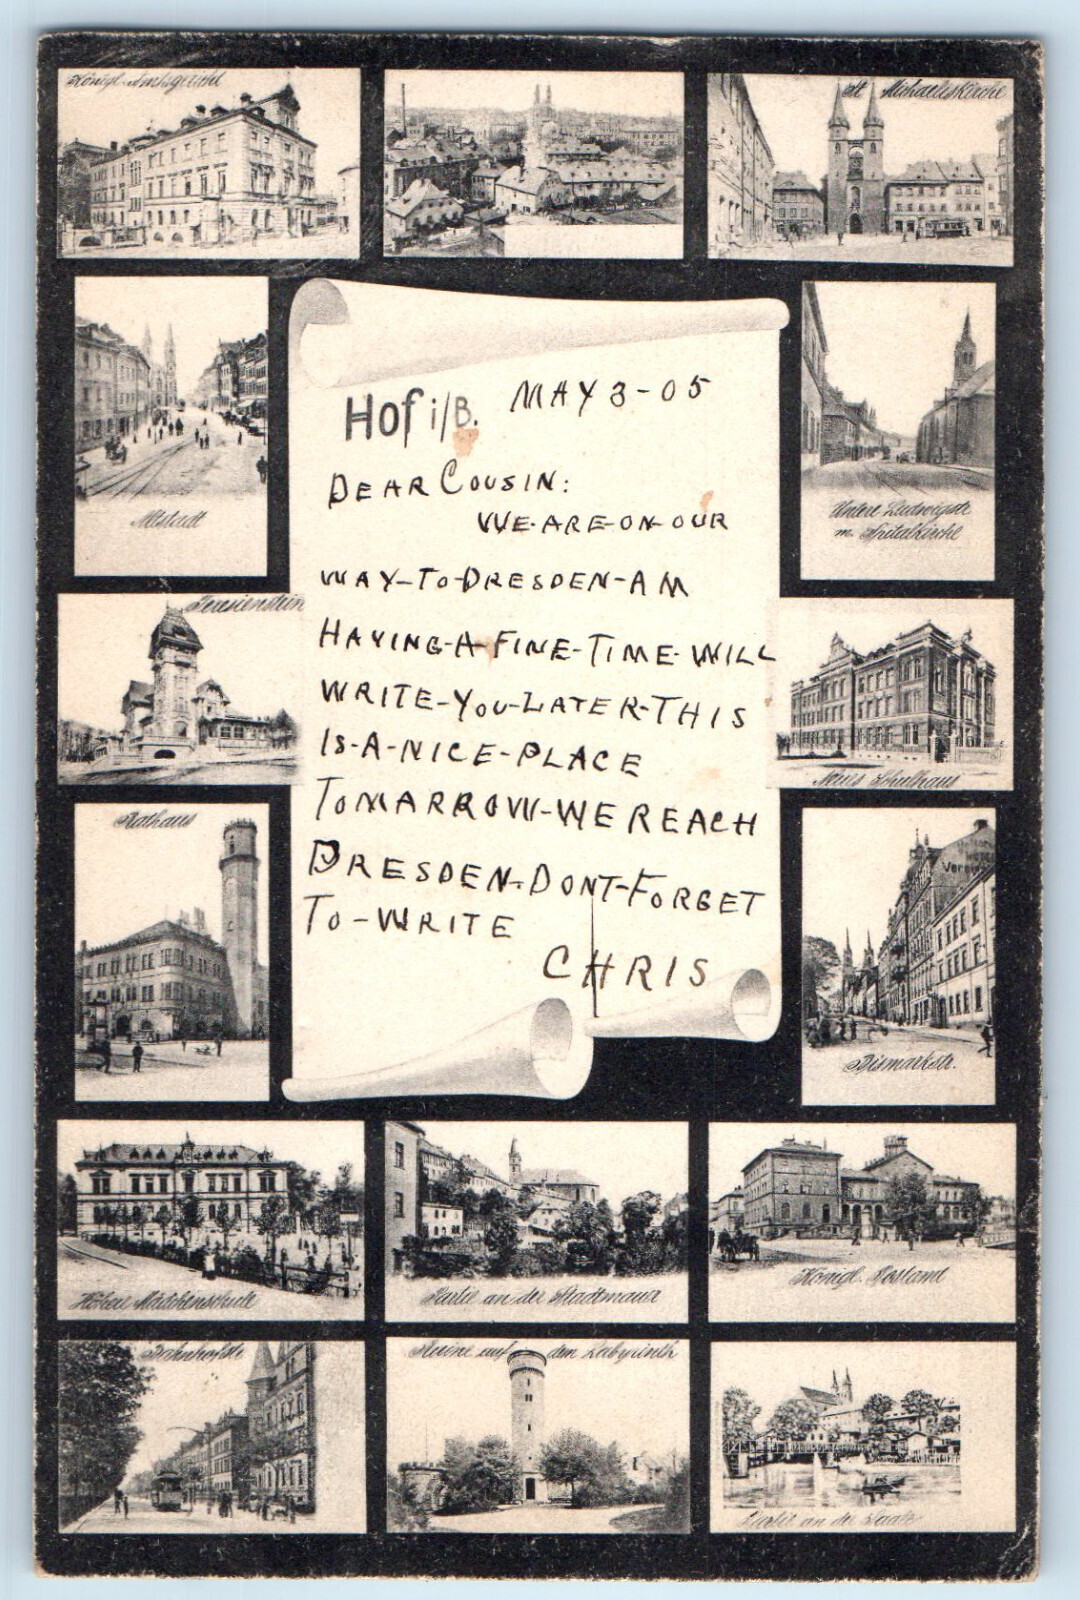 Königl. Amtsgericht
St. Michaeliskirche
Hof i/B. MAY 3-05
DEAR COUSIN:
WE-ARE-ON-OUR
WAY-TO-DRESDEN-AM
HAVING-A-FINE-TIME-WILL
WRITE-YOU-LATER-THIS
IS-A-NICE-PLACE
TOMARROW-WE REACH
DRESDEN-DONT-FORGET
TO-WRITE
CHRIS
Altstadt
Untere Ludwigstr
m. Spitalkirche
Teresienstein
Neues Schulhaus
Rathaus
Verein
Bismarkstr.
Höhere Mädchenschule
Partie an der Stadtmauer
Königl. Postamt
Bahnhofstr
Ruine auf dem Labyrinth
Partie an der Saale